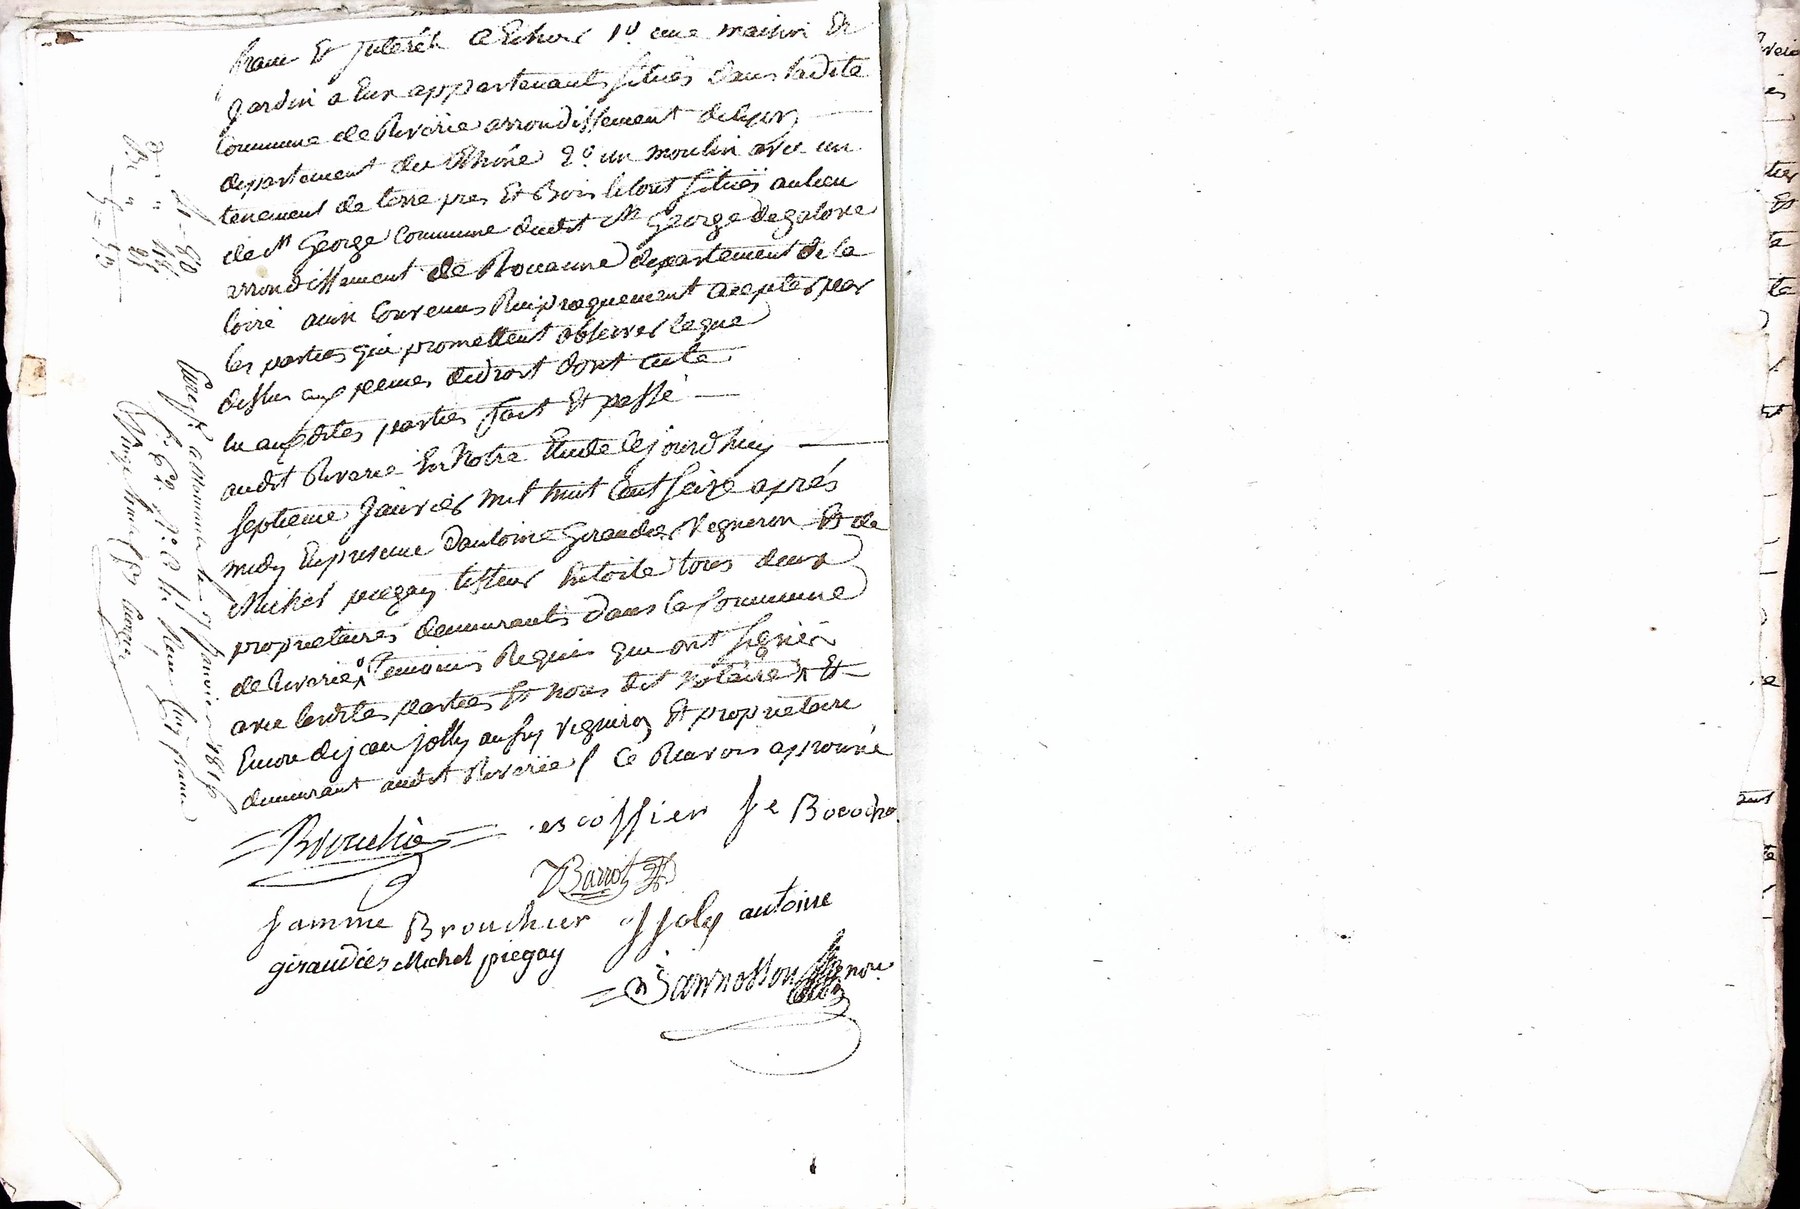 frais Et Interêt a Echoir 1º une maison Et
Jardin a Eux appartenants situés dans ladite
Commune de Riverie arrondissement de lyon
departement du Rhône 2º un moulin avec un
tenement de terre pres Et Bois le tout situés au lieu
de St George Commune dudit St George
arrondissement de Rouanne departement de la
loire ainsi Convenus Reciproquement acepter par
les parties qui promettent observer le que
dessus aux peines du droit dont acte
lu auxdites parties fait Et passé
audit Riverie En Notre Etude Cejourdhuy
septieme Janvier mil huit Cent seize aprés
midy En presence dantoine Giraudier Vigneron Et de
Michel piegay tisseur entoile tous deux
proprietaires demeurants dans la Commune
de Riverie temoins Requis qui ont signés
avec lesdites parties Et nous dit Notaire Et
Encore de jean jolly aussy vigneron Et proprietaire
demeurant audit Riverie / Ce Renvois aprouvé
escoffier fe
Barrot
famme Brouchier J Joly antoine
giraudier Michel piegay
janvier 1816